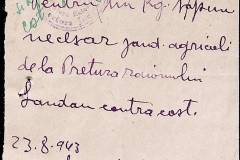 Pentru un kg. săpun
necesar jand. agricoli
de la Pretura raionului
Landau contra cost.
23.8.943